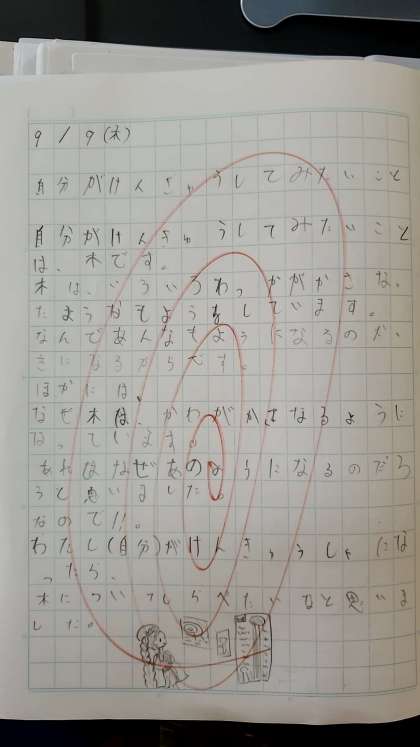 9/9(木)
自分がけんきゅうしてみたいこと
自分がけんきゅうしてみたいこと
は、木です。
木は、いろいろわっかがかさな
たようなもようをしています。
なんであんなもようになるのだい
きになるからです。
ほかには、
なぜ木は、かわがかさなるように
なっています。
あれはなぜあのようになるのだろ
うと思いました。
なので!!。
わたし(自分)がけんきゅうしゃにな
ったら、
木についてしらべたいなと思いま
した。